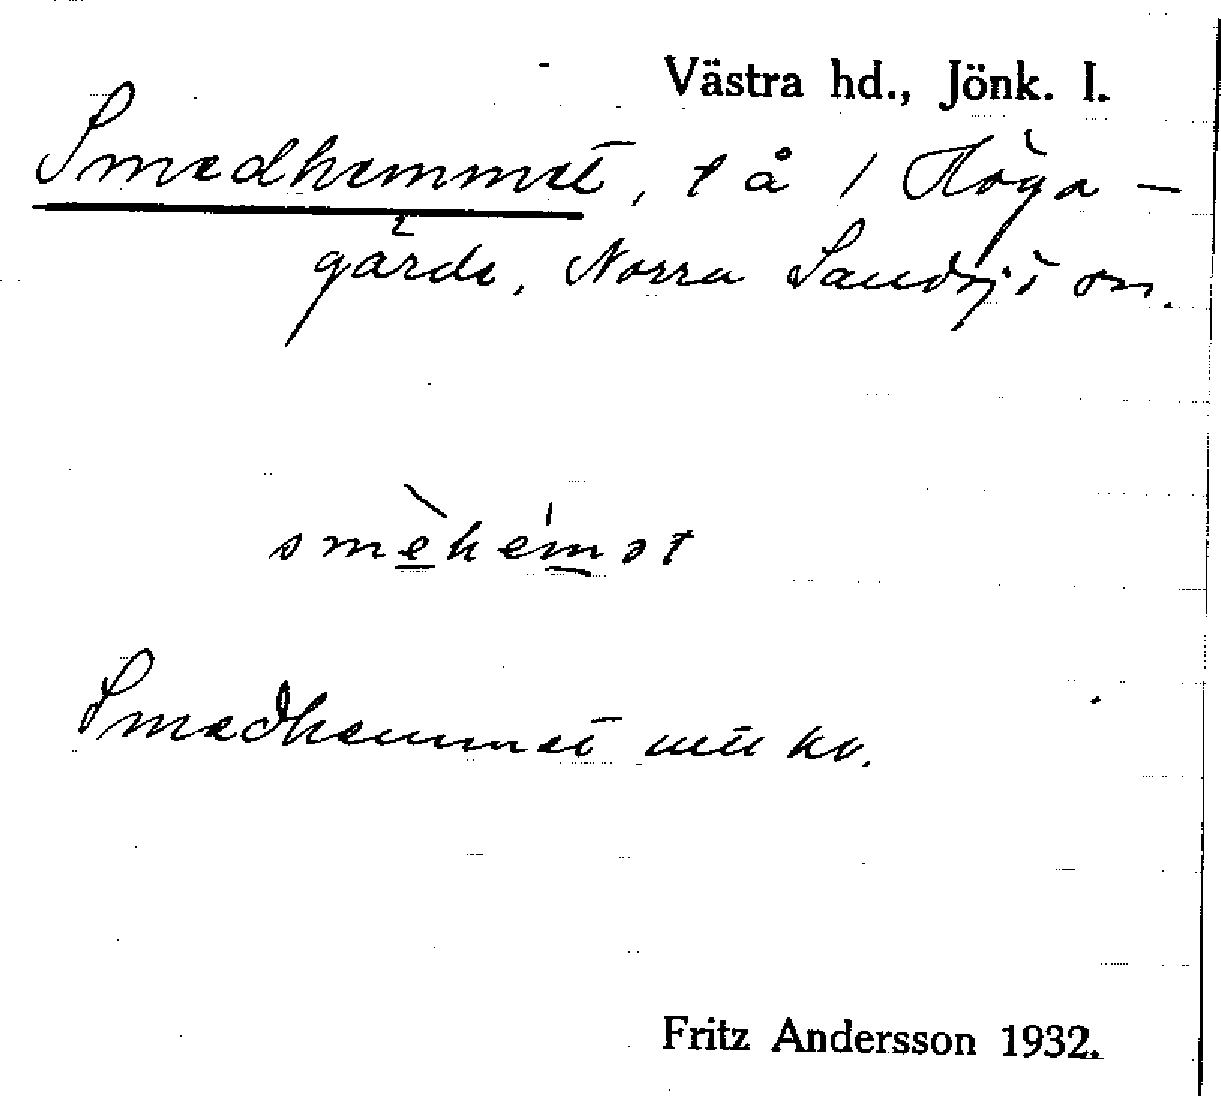 Västra hd., Jönk. l.
Smedhemmet, t å / Höga-
gärde, Norra Sandsjö sn.
smèhémət
Smedhemmet
Fritz Andersson 1932.